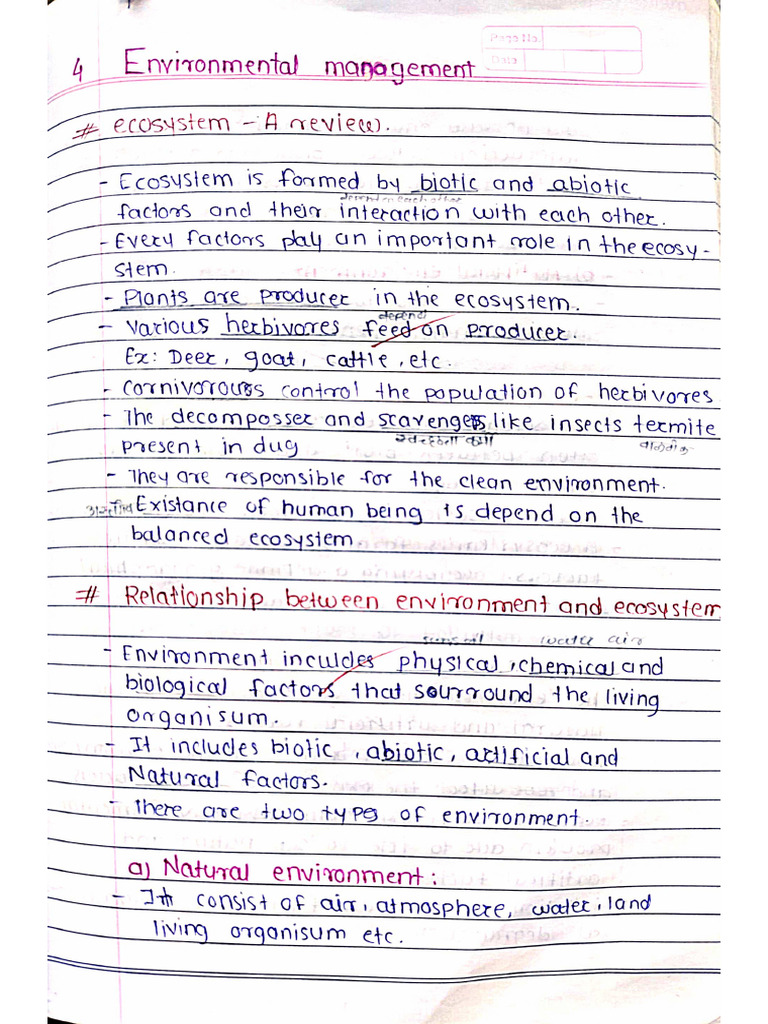 Page No.
Date
4 Environmental management
# ecosystem - A review.
- Ecosystem is formed by biotic and abiotic
factors and their interaction with each other.
- Every factors play an important role in the ecosy-
stem.
- Plants are producer in the ecosystem.
depend
- various herbivores feed on producer.
Ex: Deer, goat, cattle, etc.
- Cornivorous control the population of herbivores
- The decomposser and scavengers like insects termite
present in dug
- They are responsible for the clean environment.
Existance of human being is depend on the
balanced ecosystem.
# Relationship between environment and ecosystem
water air
- Environment inculdes physical, chemical and
biological factors that sourround the living
organisum.
- It includes biotic, abiotic, artificial and
Natural factors.
- There are two types of environment.
a) Natural environment:
- Ith consist of air, atmosphere, water, land
living organisum etc.